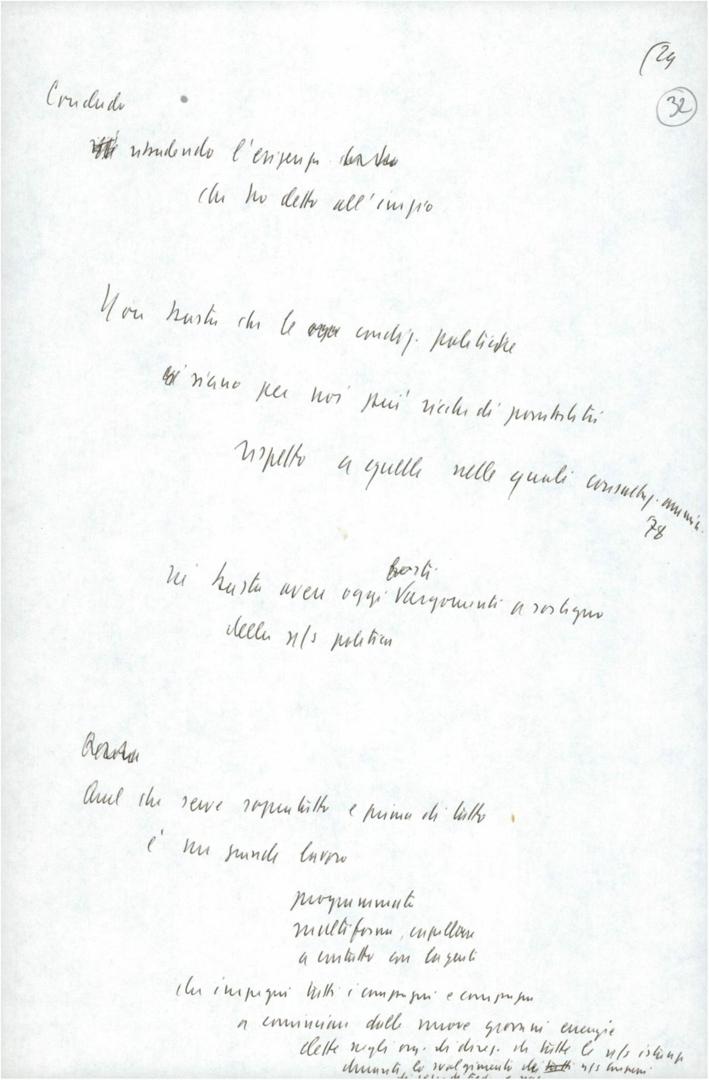 (29
32
Concludo
ribadendo l'esigenza
che ho detto all'inizio
Non basta che le condiz. politiche
siano per noi più ricche di possibilità
rispetto a quelle nelle quali consultaz. ammin.
'78
né basta avere oggi tanti argomenti a sostegno
della n/s politica
Quel che serve soprattutto e prima di tutto
è un grande lavoro
programmato
multiforme, capillare
a contatto con la gente
che impegni tutti i compagni e compagne
a cominciare dalle nuove giovani energie
elette negli org. di direz. di tutte le n/s istanze
durante lo svolgimento dei n/s